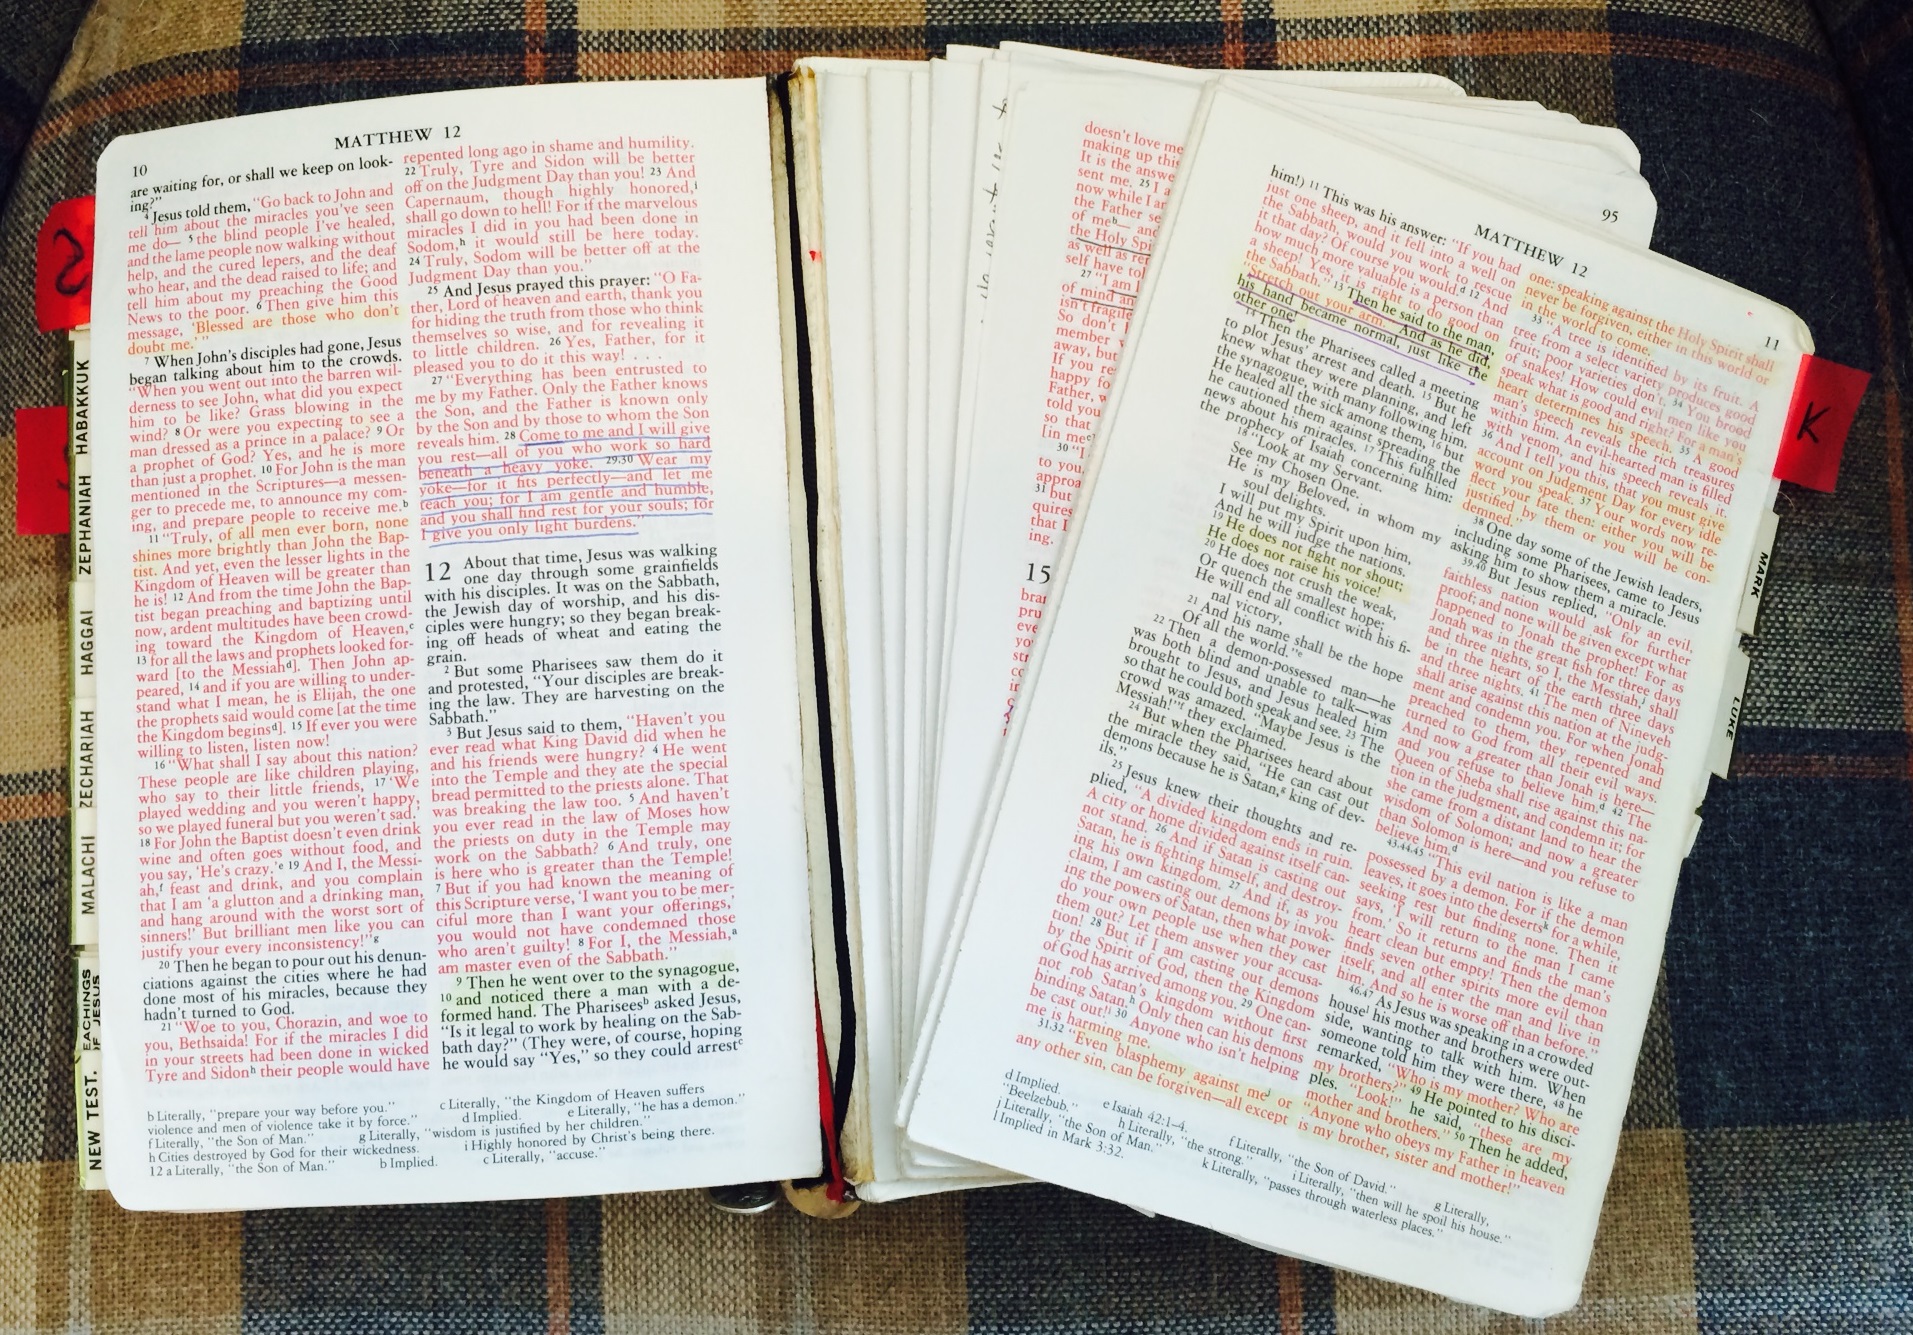 MATTHEW 12
10
are waiting for, or shall we keep on look-
ing?"
4 Jesus told them, "Go back to John and
tell him about the miracles you've seen
me do— 5 the blind people I've healed,
and the lame people now walking without
help, and the cured lepers, and the deaf
who hear, and the dead raised to life; and
tell him about my preaching the Good
News to the poor. 6 Then give him this
message, 'Blessed are those who don't
doubt me.' "
7 When John's disciples had gone, Jesus
began talking about him to the crowds.
"When you went out into the barren wil-
derness to see John, what did you expect
him to be like? Grass blowing in the
wind? 8 Or were you expecting to see a
man dressed as a prince in a palace? 9 Or
a prophet of God? Yes, and he is more
than just a prophet. 10 For John is the man
mentioned in the Scriptures—a messen-
ger to precede me, to announce my com-
ing, and prepare people to receive me.b
11 "Truly, of all men ever born, none
shines more brightly than John the Bap-
tist. And yet, even the lesser lights in the
Kingdom of Heaven will be greater than
he is! 12 And from the time John the Bap-
tist began preaching and baptizing until
now, ardent multitudes have been crowd-
ing toward the Kingdom of Heaven,c
13 for all the laws and prophets looked for-
ward [to the Messiahd]. Then John ap-
peared, 14 and if you are willing to under-
stand what I mean, he is Elijah, the one
the prophets said would come [at the time
the Kingdom beginsd]. 15 If ever you were
willing to listen, listen now!
16 "What shall I say about this nation?
These people are like children playing,
who say to their little friends, 17 'We
played wedding and you weren't happy,
so we played funeral but you weren't sad.'
18 For John the Baptist doesn't even drink
wine and often goes without food, and
you say, 'He's crazy.'e 19 And I, the Messi-
ah,f feast and drink, and you complain
that I am 'a glutton and a drinking man,
and hang around with the worst sort of
sinners!' But brilliant men like you can
justify your every inconsistency!"g
20 Then he began to pour out his denun-
ciations against the cities where he had
done most of his miracles, because they
hadn't turned to God.
21 "Woe to you, Chorazin, and woe to
you, Bethsaida! For if the miracles I did
in your streets had been done in wicked
Tyre and Sidonh their people would have
repented long ago in shame and humility.
22 Truly, Tyre and Sidon will be better
off on the Judgment Day than you! 23 And
Capernaum, though highly honored,i
shall go down to hell! For if the marvelous
miracles I did in you had been done in
Sodom,h it would still be here today.
24 Truly, Sodom will be better off at the
Judgment Day than you."
25 And Jesus prayed this prayer: "O Fa-
ther, Lord of heaven and earth, thank you
for hiding the truth from those who think
themselves so wise, and for revealing it
to little children. 26 Yes, Father, for it
pleased you to do it this way! . . .
27 "Everything has been entrusted to
me by my Father. Only the Father knows
the Son, and the Father is known only
by the Son and by those to whom the Son
reveals him. 28 Come to me and I will give
you rest—all of you who work so hard
beneath a heavy yoke. 29,30 Wear my
yoke—for it fits perfectly—and let me
teach you; for I am gentle and humble,
and you shall find rest for your souls; for
I give you only light burdens."
12 About that time, Jesus was walking
one day through some grainfields
with his disciples. It was on the Sabbath,
the Jewish day of worship, and his dis-
ciples were hungry; so they began break-
ing off heads of wheat and eating the
grain.
2 But some Pharisees saw them do it
and protested, "Your disciples are break-
ing the law. They are harvesting on the
Sabbath."
3 But Jesus said to them, "Haven't you
ever read what King David did when he
and his friends were hungry? 4 He went
into the Temple and they ate the special
bread permitted to the priests alone. That
was breaking the law too. 5 And haven't
you ever read in the law of Moses how
the priests on duty in the Temple may
work on the Sabbath? 6 And truly, one
is here who is greater than the Temple!
7 But if you had known the meaning of
this Scripture verse, 'I want you to be mer-
ciful more than I want your offerings,'
you would not have condemned those
who aren't guilty! 8 For I, the Messiah,a
am master even of the Sabbath."
9 Then he went over to the synagogue,
10 and noticed there a man with a de-
formed hand. The Phariseesb asked Jesus,
"Is it legal to work by healing on the Sab-
bath day?" (They were, of course, hoping
he would say "Yes," so they could arrestc
b Literally, "prepare your way before you." c Literally, "the Kingdom of Heaven suffers
violence and men of violence take it by force." d Implied. e Literally, "he has a demon."
f Literally, "the Son of Man." g Literally, "wisdom is justified by her children."
h Cities destroyed by God for their wickedness. i Highly honored by Christ's being there.
12 a Literally, "the Son of Man." b Implied. c Literally, "accuse."
HABAKKUK
ZEPHANIAH
HAGGAI
ZECHARIAH
MALACHI
EACHINGS
F JESUS
NEW TEST.
doesn't love me
making up this
It is the answe
sent me. 25 I a
now while I ar
the Father se
of meb— and
the Holy Spi
as well as rem
self have tol
27 "I am l
of mind an
isn't fragile
So don't l
member
away, but
If you re
happy fo
Father, w
told you
so that
lin mec
30 "I
to you,
approa
31 but
quires
that I
ing.
15
bran
pru
eve
yo
str
95
MATTHEW 12
11
him!) 11 This was his answer: "If you had
just one sheep, and it fell into a well on
the Sabbath, would you work to rescue
it that day? Of course you would.d 12 And
how much more valuable is a person than
a sheep! Yes, it is right to do good on
the Sabbath." 13 Then he said to the man,
"Stretch out your arm." And as he did,
his hand became normal, just like the
other one!
14 Then the Pharisees called a meeting
to plot Jesus' arrest and death. 15 But he
knew what they were planning, and left
the synagogue, with many following him.
He healed all the sick among them, 16 but
he cautioned them against spreading the
news about his miracles. 17 This fulfilled
the prophecy of Isaiah concerning him:
18 "Look at my Servant.
See my Chosen One.
He is my Beloved, in whom my
soul delights.
I will put my Spirit upon him,
And he will judge the nations.
19 He does not fight nor shout;
He does not raise his voice!
20 He does not crush the weak,
Or quench the smallest hope;
He will end all conflict with his fi-
nal victory,
21 And his name shall be the hope
Of all the world."e
22 Then a demon-possessed man—he
was both blind and unable to talk—was
brought to Jesus, and Jesus healed him
so that he could both speak and see. 23 The
crowd was amazed. "Maybe Jesus is the
Messiah!"f they exclaimed.
24 But when the Pharisees heard about
the miracle they said, "He can cast out
demons because he is Satan,g king of dev-
ils."
25 Jesus knew their thoughts and re-
plied, "A divided kingdom ends in ruin.
A city or home divided against itself can-
not stand. 26 And if Satan is casting out
Satan, he is fighting himself, and destroy-
ing his own kingdom. 27 And if, as you
claim, I am casting out demons by invok-
ing the powers of Satan, then what power
do your own people use when they cast
them out? Let them answer your accusa-
tion! 28 But if I am casting out demons
by the Spirit of God, then the Kingdom
of God has arrived among you. 29 One can-
not rob Satan's kingdom without first
binding Satan.h Only then can his demons
be cast out!i 30 Anyone who isn't helping
me is harming me.
31,32 "Even blasphemy against mej or
any other sin, can be forgiven—all except
one: speaking against the Holy Spirit shall
never be forgiven, either in this world or
in the world to come.
33 "A tree is identified by its fruit. A
tree from a select variety produces good
fruit; poor varieties don't. 34 You brood
of snakes! How could evil men like you
speak what is good and right? For a man's
heart determines his speech. 35 A good
man's speech reveals the rich treasures
within him. An evil-hearted man is filled
with venom, and his speech reveals it.
36 And I tell you this, that you must give
account on Judgment Day for every idle
word you speak. 37 Your words now re-
flect your fate then: either you will be
justified by them or you will be con-
demned."
38 One day some of the Jewish leaders,
including some Pharisees, came to Jesus
asking him to show them a miracle.
39,40 But Jesus replied, "Only an evil,
faithless nation would ask for further
proof; and none will be given except what
happened to Jonah the prophet! For as
Jonah was in the great fish for three days
and three nights, so I, the Messiah,j shall
be in the heart of the earth three days
and three nights. 41 The men of Nineveh
shall arise against this nation at the judg-
ment and condemn you. For when Jonah
preached to them, they repented and
turned to God from all their evil ways.
And now a greater than Jonah is here—
and you refuse to believe him.d 42 The
Queen of Sheba shall rise against this na-
tion in the judgment, and condemn it; for
she came from a distant land to hear the
wisdom of Solomon; and now a greater
than Solomon is here—and you refuse to
believe him.d
43,44,45 "This evil nation is like a man
possessed by a demon. For if the demon
leaves, it goes into the desertsk for a while,
seeking rest but finding none. Then it
says, 'I will return to the man I came
from.' So it returns and finds the man's
heart clean but empty! Then the demon
finds seven other spirits more evil than
itself, and all enter the man and live in
him. And so he is worse off than before."
46,47 As Jesus was speaking in a crowded
housel his mother and brothers were out-
side, wanting to talk with him. When
someone told him they were there, 48 he
remarked, "Who is my mother? Who are
my brothers?" 49 He pointed to his disci-
ples. "Look!" he said, "these are my
mother and brothers." 50 Then he added,
"Anyone who obeys my Father in heaven
is my brother, sister and mother!"
d Implied. e Isaiah 42:1-4. f Literally, "the Son of David." g Literally,
"Beelzebub." h Literally, "the strong." i Literally, "then will he spoil his house."
j Literally, "the Son of Man." k Literally, "passes through waterless places."
l Implied in Mark 3:32.
K
MARK
LUKE